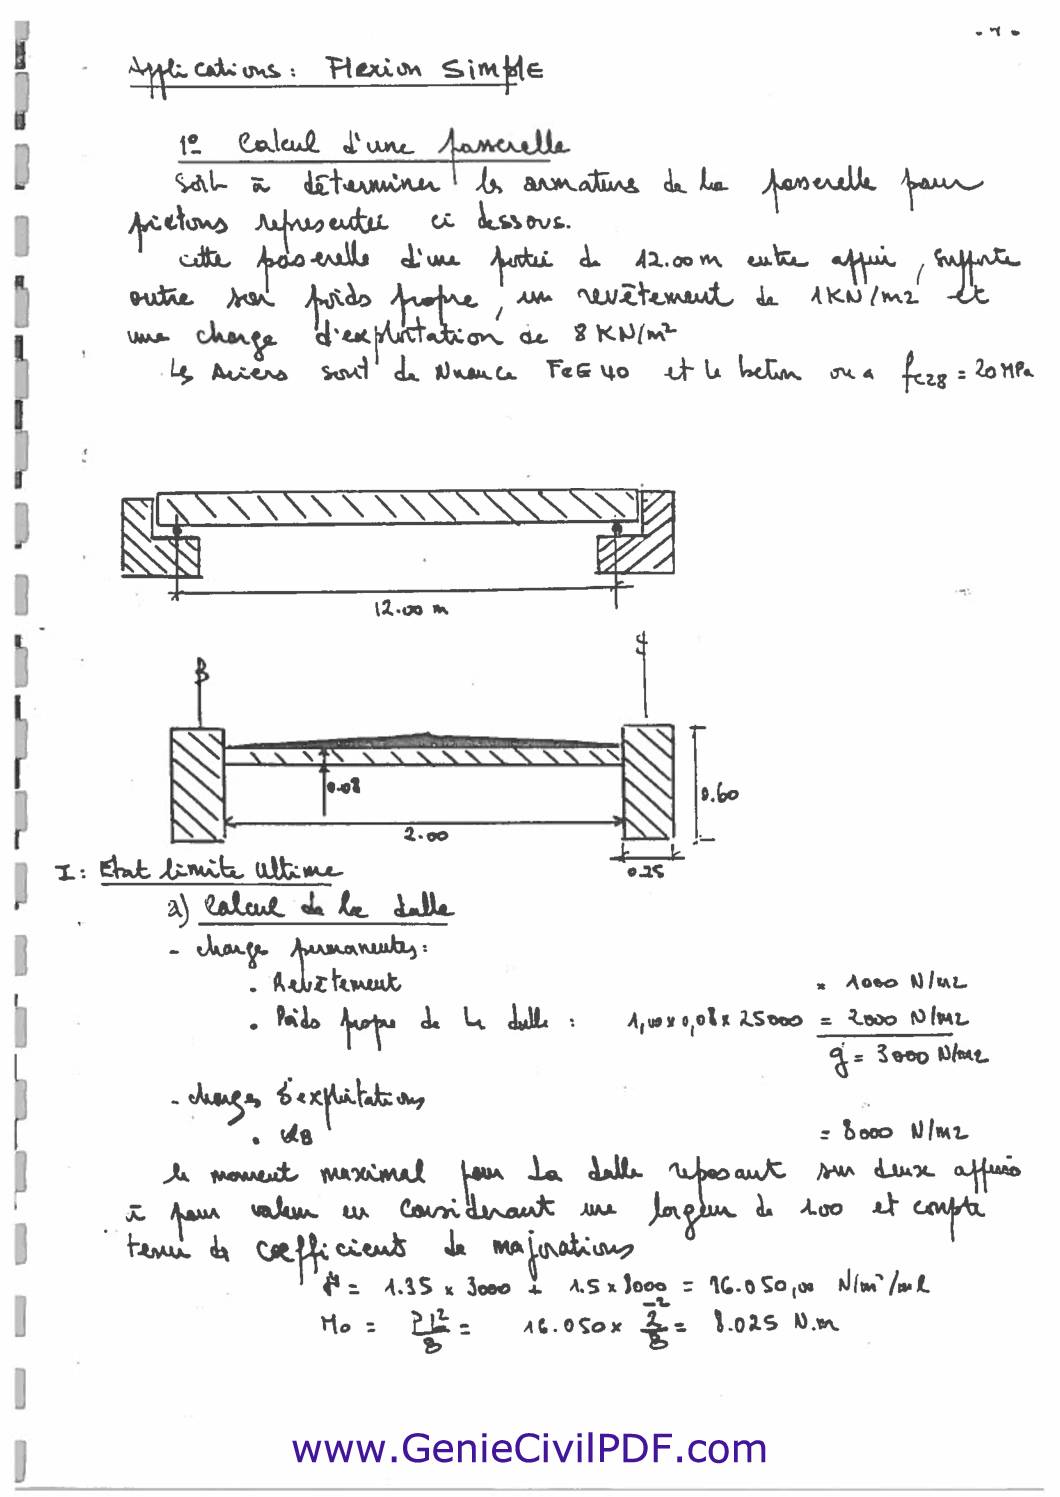 - 1 -
Applications : Flexion Simple
1º Calcul d'une passerelle
Soit à déterminer les armatures de la passerelle pour
piétons representée ci dessous.
cette passerelle d'une portée de 12.00 m entre appui, supporte
outre son poids propre, un revêtement de 1KN/m2 et
une charge d'exploitation de 8 KN/m²
Les Aciers sont de Nuance FeE 40 et le beton on a fc28 = 20 MPa
12.00 m
0.08
0.60
2.00
0.25
I : Etat limite Ultime
a) Calcul de la dalle
- charge permanentes :
. Revêtement = 1000 N/m2
. Poids propre de la dalle : 1,00 x 0,08 x 25000 = 2000 N/m2
g = 3000 N/m2
- charges d'exploitations
. QB = 8000 N/m2
le moment maximal pour la dalle reposant sur deux appuis
à pour valeur en considerant une largeur de 1.00 et compte
tenu de coefficients de majorations
P = 1.35 x 3000 + 1.5 x 8000 = 16.050,00 N/m²/ml
Mo = PL²/8 = 16.050 x 2²/8 = 8.025 N.m
www.GenieCivilPDF.com